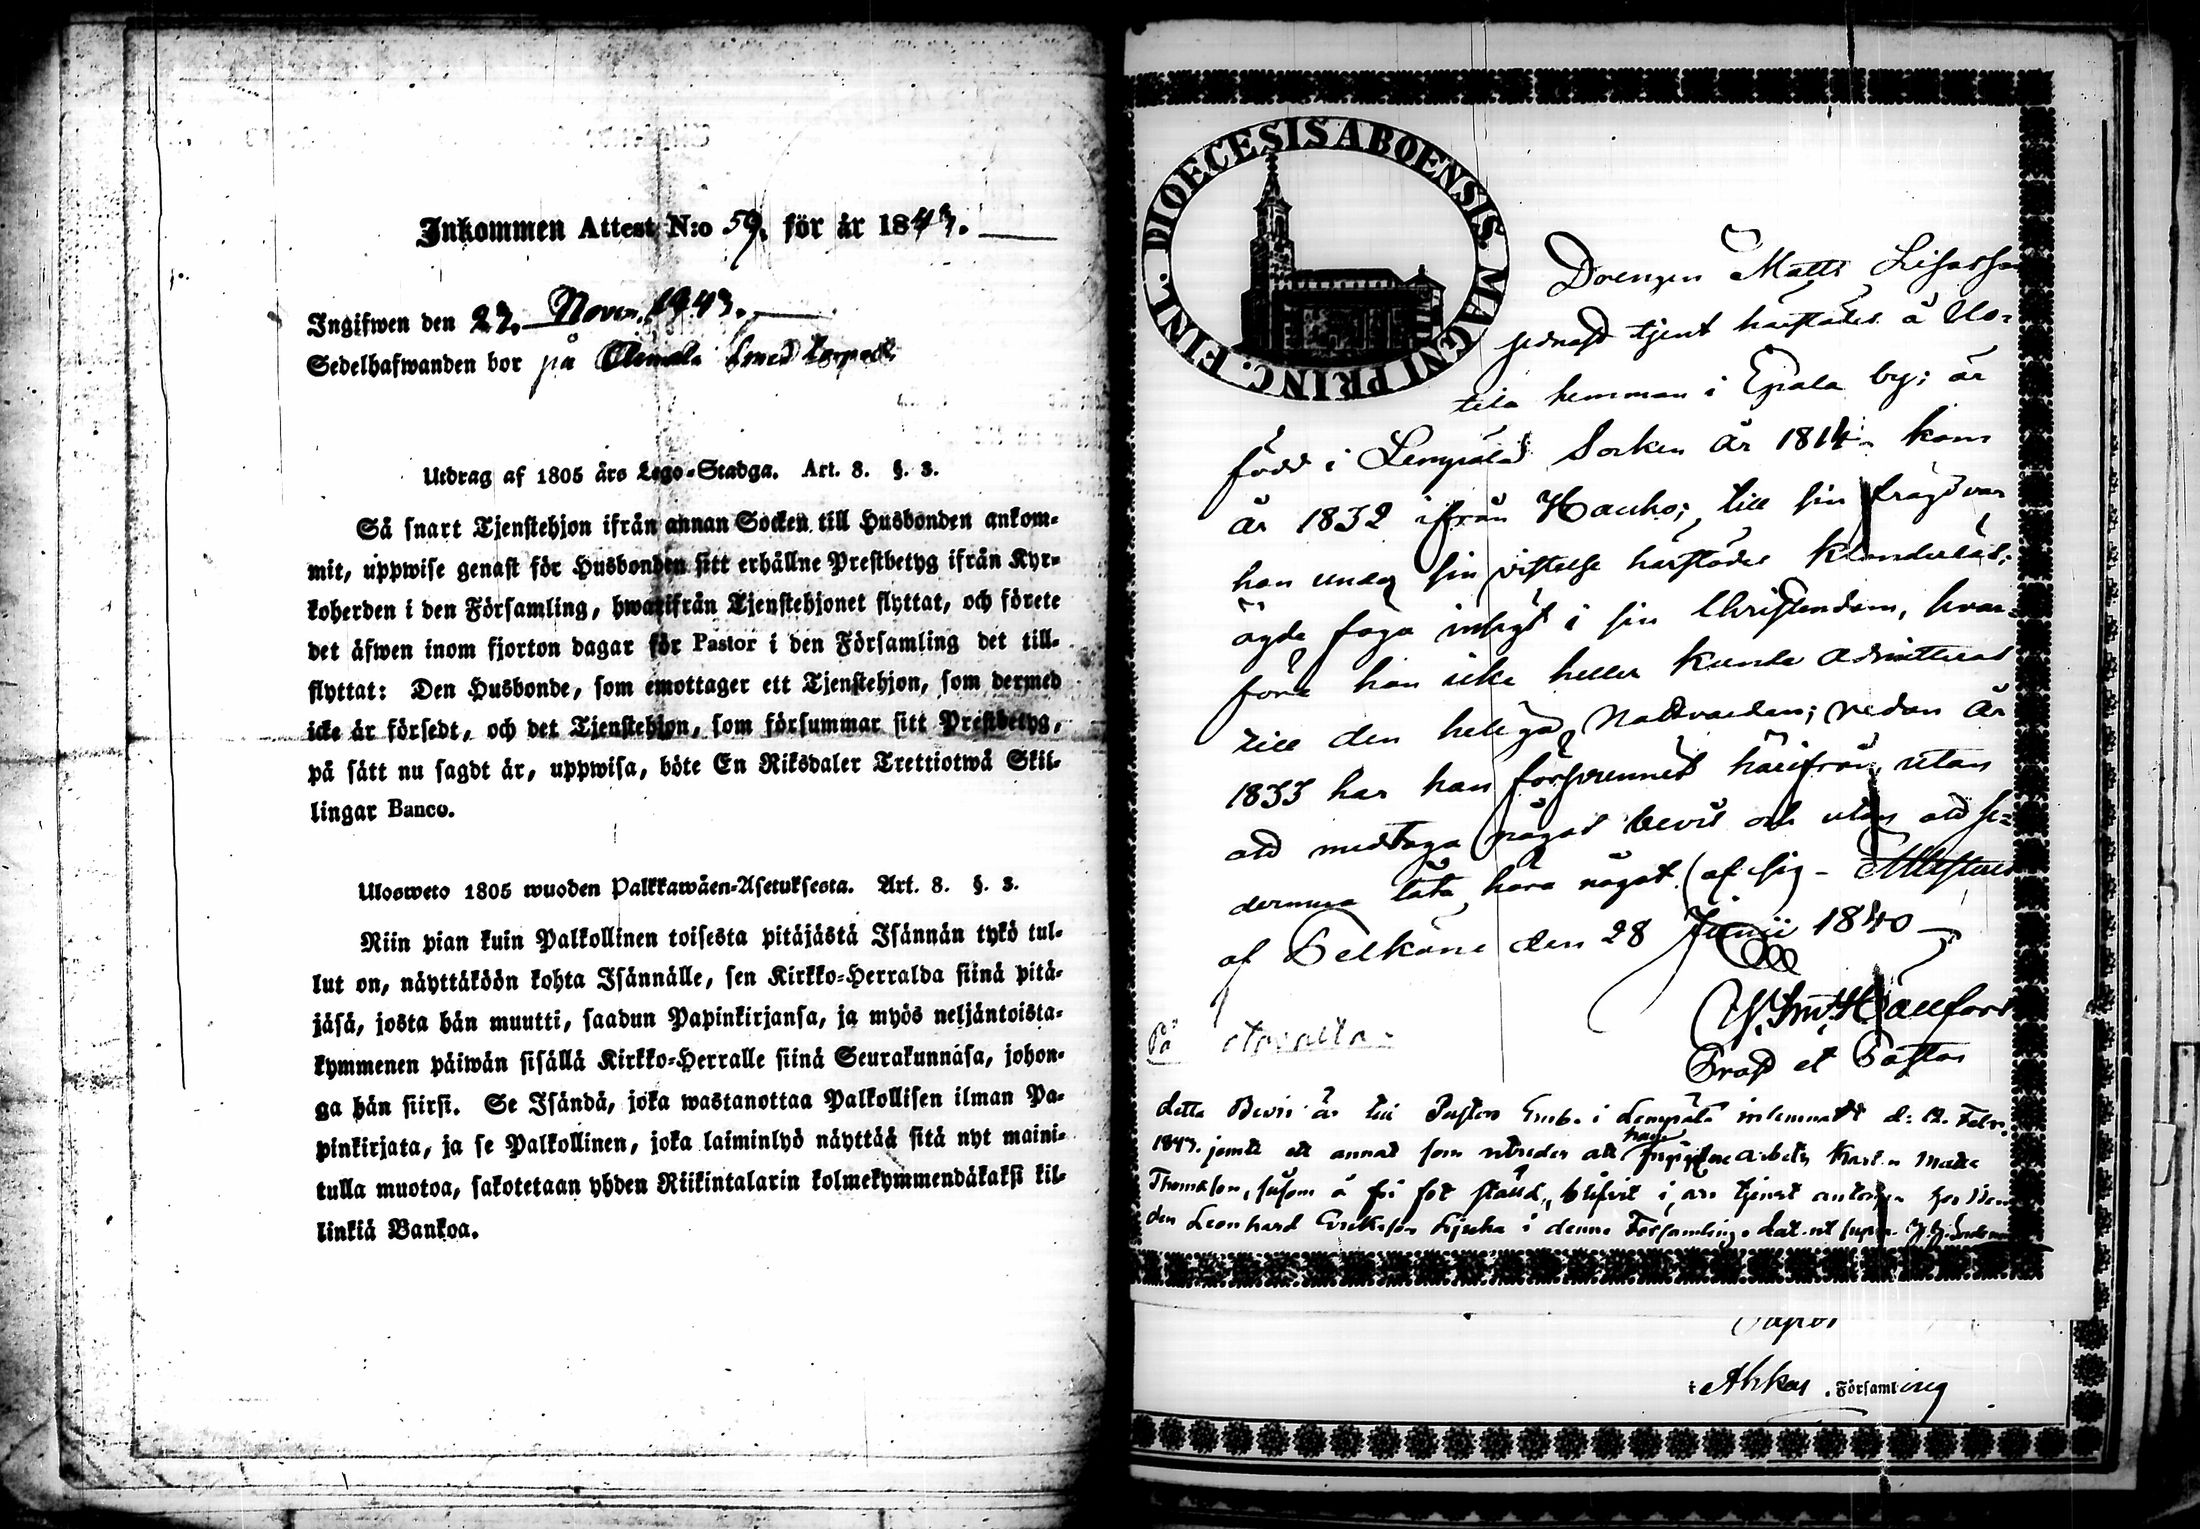 Inkommen Attest N:o 59. för år 1843.
Ingifwen den 23. Novem. 1843.
Sedelhafwanden bor på
Utdrag af 1805 års Lego-Stadga. Art. 8. §. 3.
Så snart Tjenstehjon ifrån annan Socken till Husbonden ankom-
mit, uppwise genast för Husbonden sitt erhållne Prestbetyg ifrån Kyr-
koherden i den Församling, hwarifrån Tjenstehjonet flyttat, och förete
det äfwen inom fjorton dagar för Pastor i den Församling det till-
flyttat: Den Husbonde, som emottager ett Tjenstehjon, som dermed
icke är försedt, och det Tjenstehjon, som försummar sitt Prestbetyg,
på sätt nu sagdt är, uppwisa, böte En Riksdaler Trettiotwå Skil-
lingar Banco.
Ulosweto 1805 wuoden Palkkawäen-Asetuksesta. Art. 8. §. 3.
Niin pian kuin Palkollinen toisesta pitäjästä Isännän tykö tul-
lut on, näyttäköön kohta Isännälle, sen Kirkko-Herralda siinä pitä-
jäsä, josta hän muutti, saadun Papinkirjansa, ja myös neljäntoista-
kymmenen päiwän sisällä Kirkko-Herralle siinä Seurakunnasa, johon-
ga hän siirsi. Se Isändä, joka wastanottaa Palkollisen ilman Pa-
pinkirjata, ja se Palkollinen, joka laiminlyö näyttää sitä nyt maini-
tulla muotoa, sakotetaan yhden Riikintalarin kolmekymmendäkaksi kil-
linkiä Bankoa.
DIOECESIS ABOENSIS. MAGNI PRINC. FINL.
Drengen Matts
tjent härstädes å
tila hemman i Epaala by; är
född i Lempälä Socken år 1814 kom
år 1832 ifrån Hauho; till sin frägd var
han under sin vistelse härstädes klanderlös;
ägde föga insigt i sin Christendom, hvar-
före han icke heller kunde admitteras
till den heliga Nattvarden; redan år
1833 har han försvunnet härifrån utan
att medtaga något bevis och utan att se-
dermera låta höra något af sig - Attesteras
af Pelkäne den 28 Junii 1840
Hallfors
Prost et Pastor
På
detta Bevis är till Pastors Emb. i Lempälä inlemnadt d: 12. Febr.
1843. jemte ett annat som utreder att
Thomasson, såsom å fri fot ställd, blifvit i års tjenst antagen hos
den Leonhard Eriksson i denna Församling.
i Akkas Församling